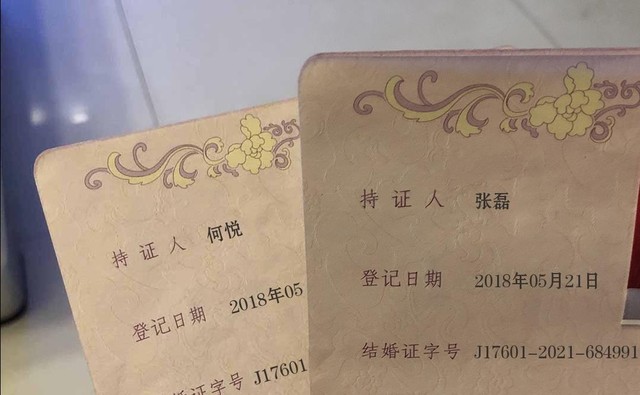 持证人 何悦
登记日期 2018年05
婚证字号 J17601
持证人 张磊
登记日期 2018年05月21日
结婚证字号 J17601-2021-684991